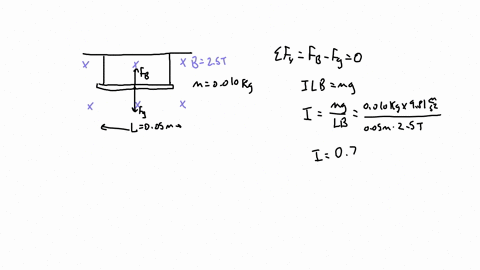 x x x B=2.5T
F_B
m=0.010kg
x x x
F_g
L=0.05m
ΣF_y = F_B - F_g = 0
ILB = mg
I = mg/LB = 0.010kg × 9.81 m/s² / 0.05m · 2.5T
I = 0.7